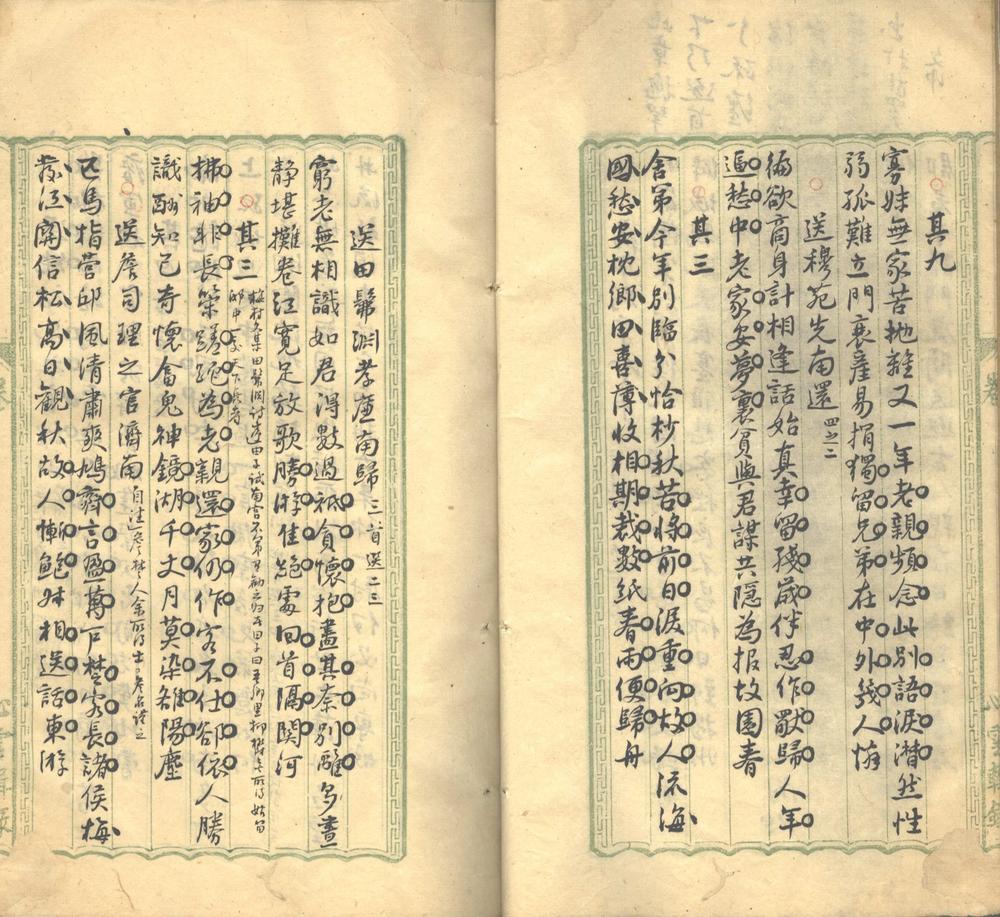 其九
寡妹無家苦拋雛又一年老親頻念此別語淚潸然性
弱孤難立門衰產易捐獨留兄弟在中外幾人憐
送穆苑先南還四之二
徧欲商身計相逢話始真幸留殘歲伴忍作獸歸人年
逼愁中老家安夢裏貧與君謀共隱為報故園春
其三
舍弟今年別臨分恰杪秋苦將前日淚重向故人流海
國愁安枕鄉田喜薄收相期裁數紙春雨便歸舟
送田髴淵孝廉南歸三首選二三
窮老無相識如君得數過祗貪懷抱盡其奈別離多晝
靜堪攤卷江寬足放歌勝游佳絕處回首隔關河
其三
拂袖非長策蹉跎為老親還家仍作客不仕卻依人勝
識酬知己奇懷會鬼神鏡湖千丈月莫染雒陽塵
送詹司理之官濟南
匹馬指營邱風清肅爽鳩齊言盈萬戶楚客長諸侯梅
發江關信松高日觀秋故人慚鮑叔相送話東游